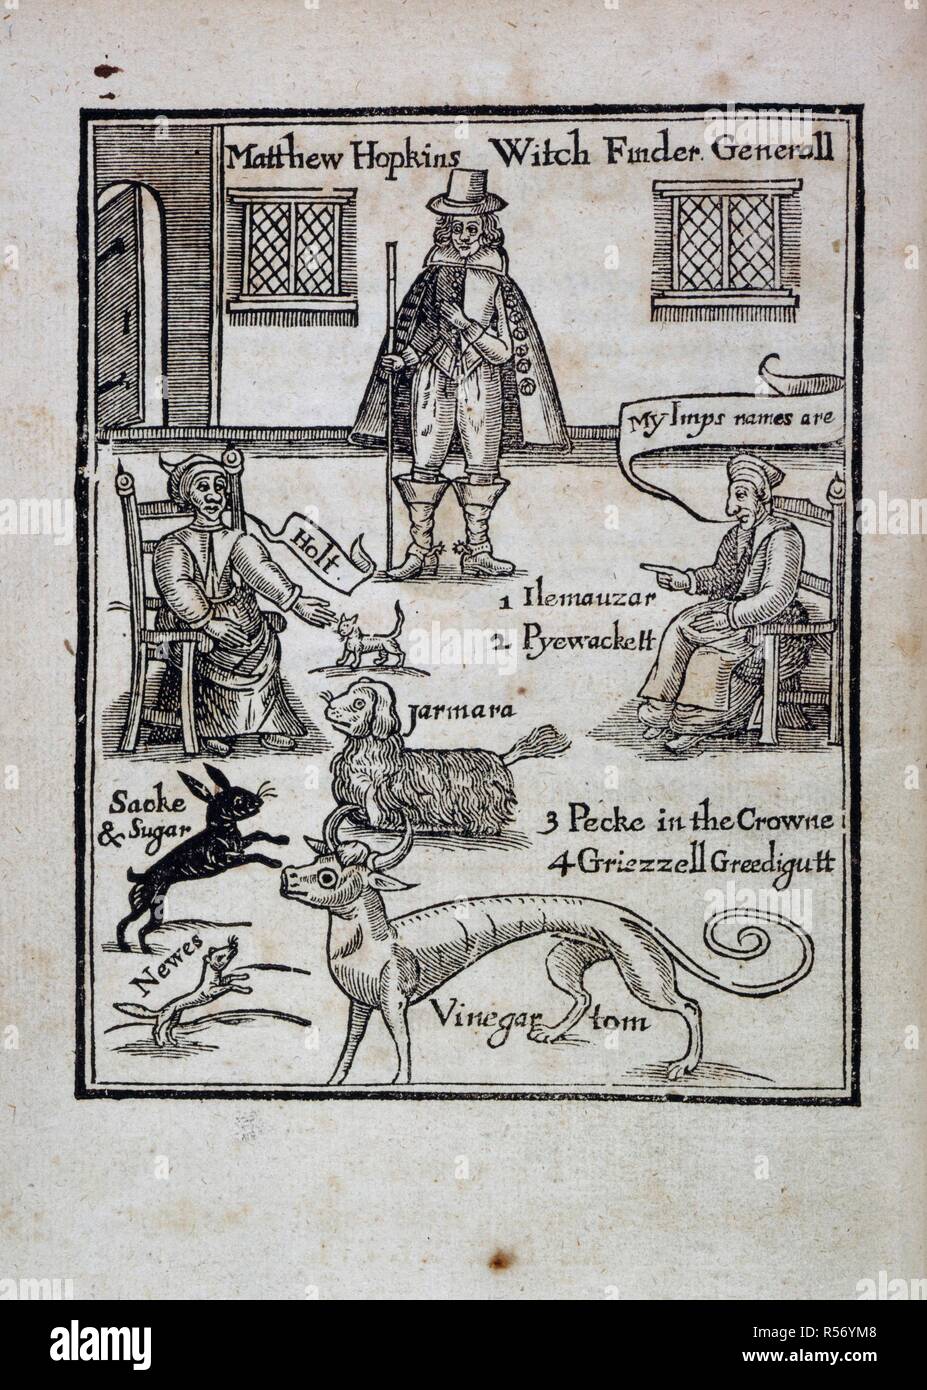 Matthew Hopkins Witch Finder Generall
My Imps names are
Holt
1 Ilemauzar
2 Pyewackett
Jarmara
Sacke
& Sugar
3 Pecke in the Crowne
4 Griezzell Greedigutt
Newes
Vinegar tom
alamy
Image ID: R56YM8
www.alamy.com